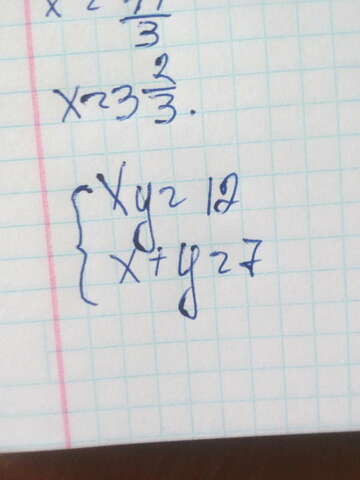 x = 11/3
x = 3 2/3.
{ xy = 12
x + y = 7